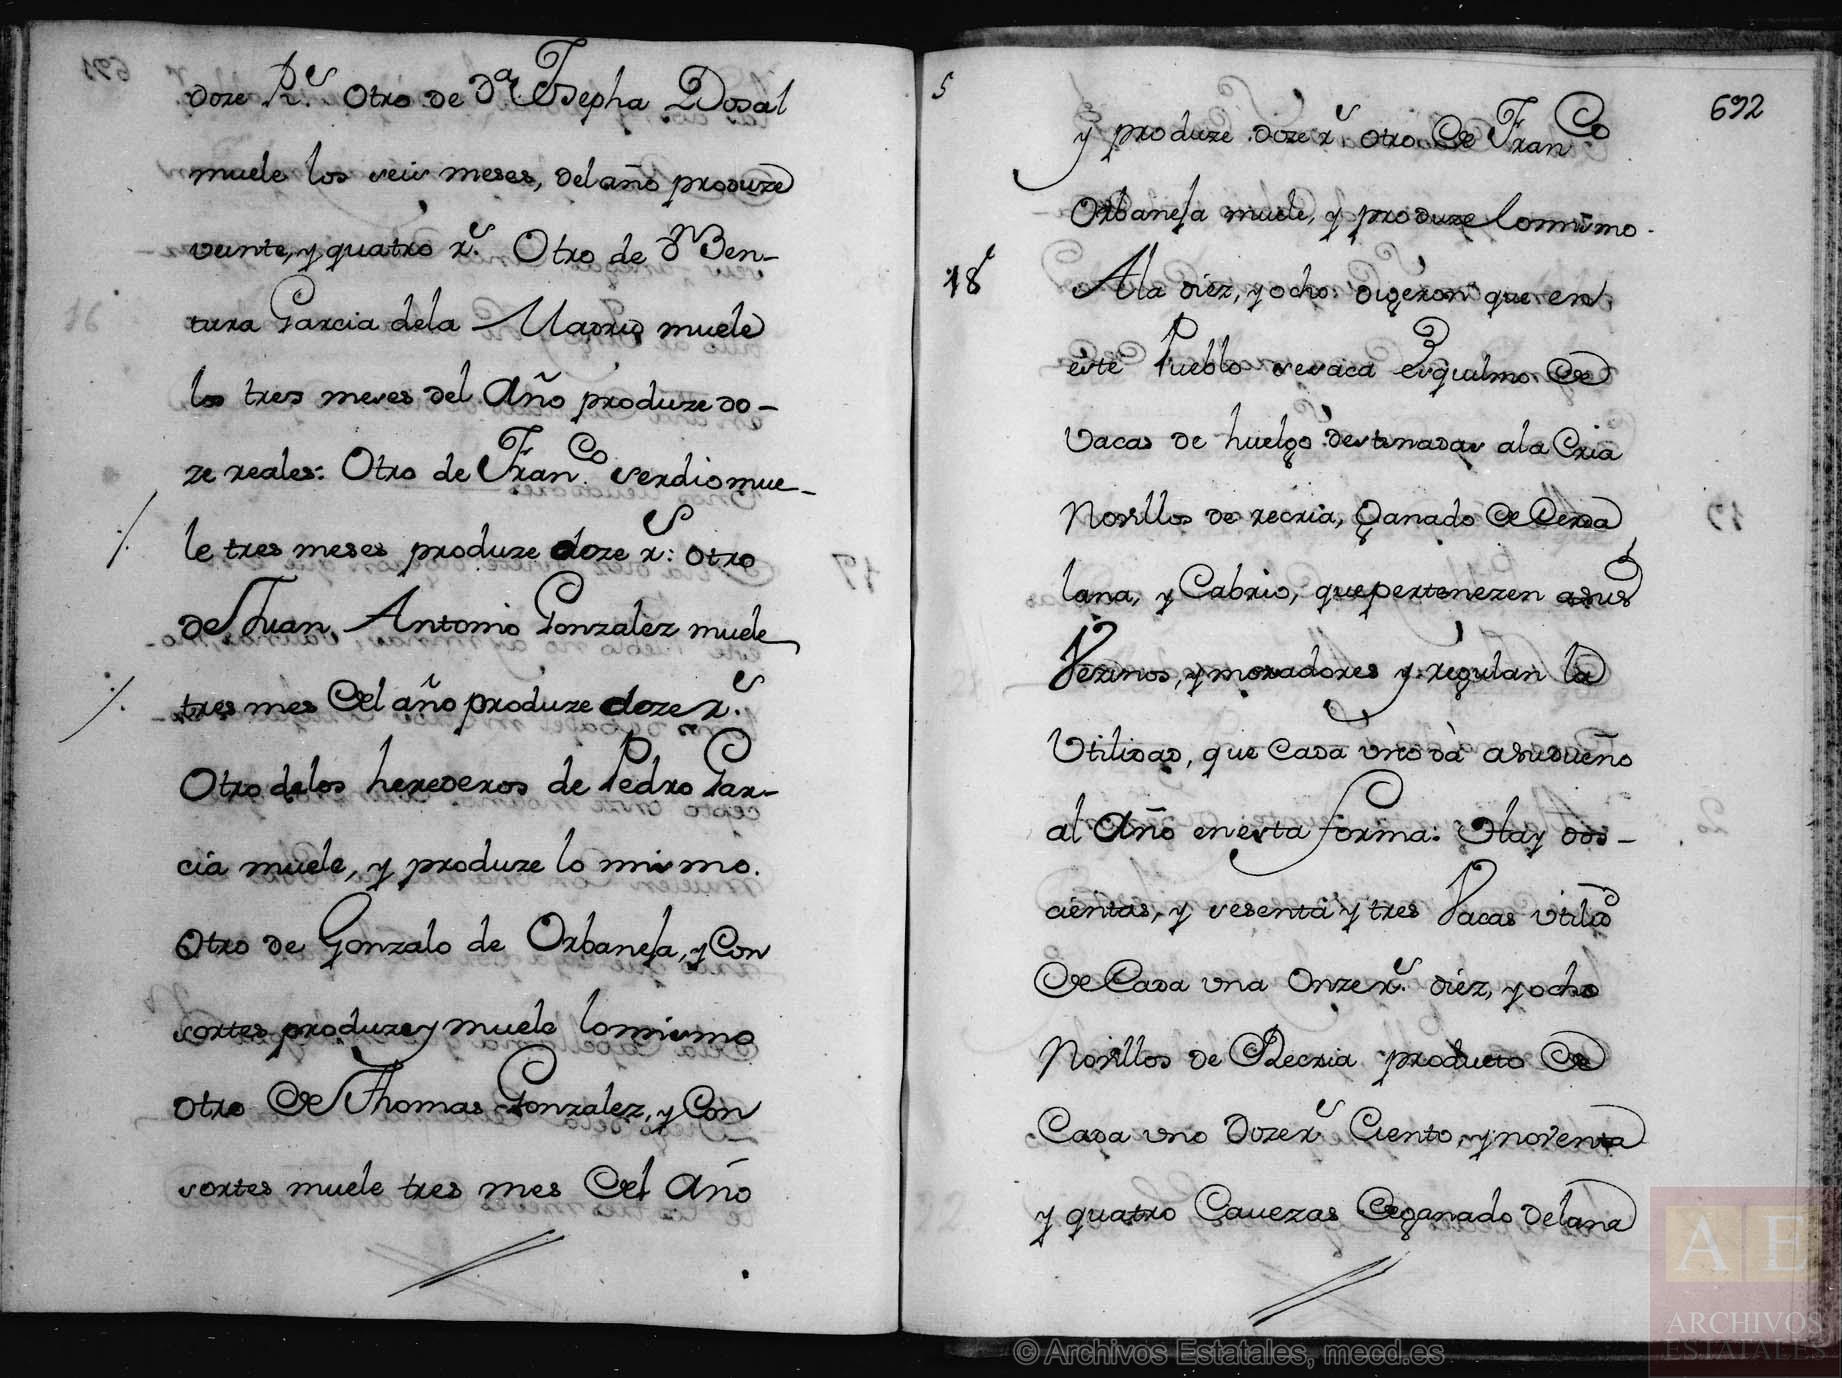 doze R.s Otro de D.a Josepha Dosal
muele los seis meses, del año produze
veinte, y quatro r.s Otro de D.n Ben-
tura Garcia dela Madrid muele
los tres meses del Año produze do-
ze reales: Otro de Fran.co Verdio mue-
le tres meses produze doze r.s: otro
de Juan Antonio Gonzalez muele
tres mes del año produze doze r.s
Otro delos herederos de Pedro Gar-
cia muele, y produze lo mismo.
Otro de Gonzalo de Orbaneja, y Con
sortes produze y muele lo mismo
otro de Thomas Gonzalez, y Con
sortes muele tres mes del Año
5
692
y produze doze r.s otro de Fran.co
Orbaneja muele, y produze lo mismo.
18
A la diez, y ocho: digeron que en
este Pueblo se saca esquilmo de
Vacas de huelgo destinadas ala Cria
Novillos de recria, Ganado de Cerda
lana, y Cabrio, que pertenezen asus
Vezinos, y moradores y regulan la
Utilidad, que Cada uno dà asudueño
al Año en esta forma: Hay dos-
cientas, y sesenta y tres Vacas utilid
de Cada una Onze r.s diez, y ocho
Novillos de Recria producto de
Cada uno Doze r.s Ciento, y noventa
y quatro Cavezas de ganado de lana
© Archivos Estatales, mecd.es
AE
ARCHIVOS
ESTATALES